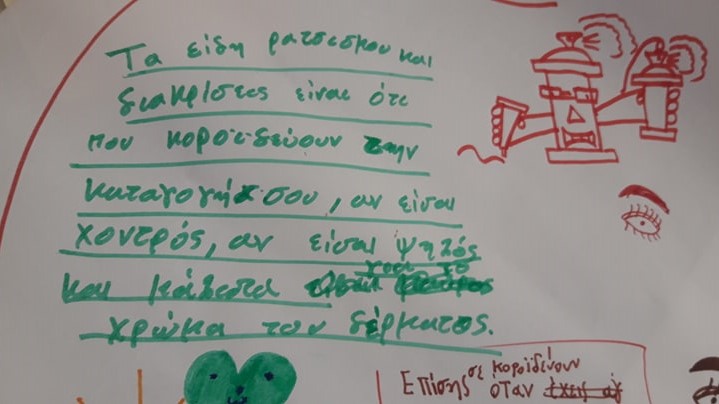 Τα είδη ρατσισμου και
διακρίσεις είναι ότι
που κοροϊδεύουν την
καταγογή σου, αν είσαι
χοντρός, αν είσαι ψηλός
και μάλιστα για το
χρώμα του δέρματος.
Επίσης σε κοροϊδεύουν
όταν έχεις